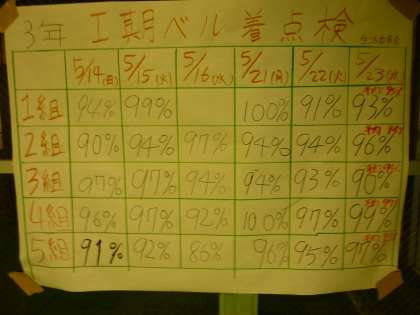 3年 I期ベル着点検 生活委員会
5/14(月) 5/15(火) 5/16(水) 5/21(月) 5/22(火) 5/23(水)
1組 94% 99% 100% 91% 93%
2組 90% 94% 97% 94% 94% 96%
3組 97% 97% 94% 94% 93% 90%
4組 96% 97% 92% 100% 97% 99%
5組 91% 92% 86% 96% 95% 97%